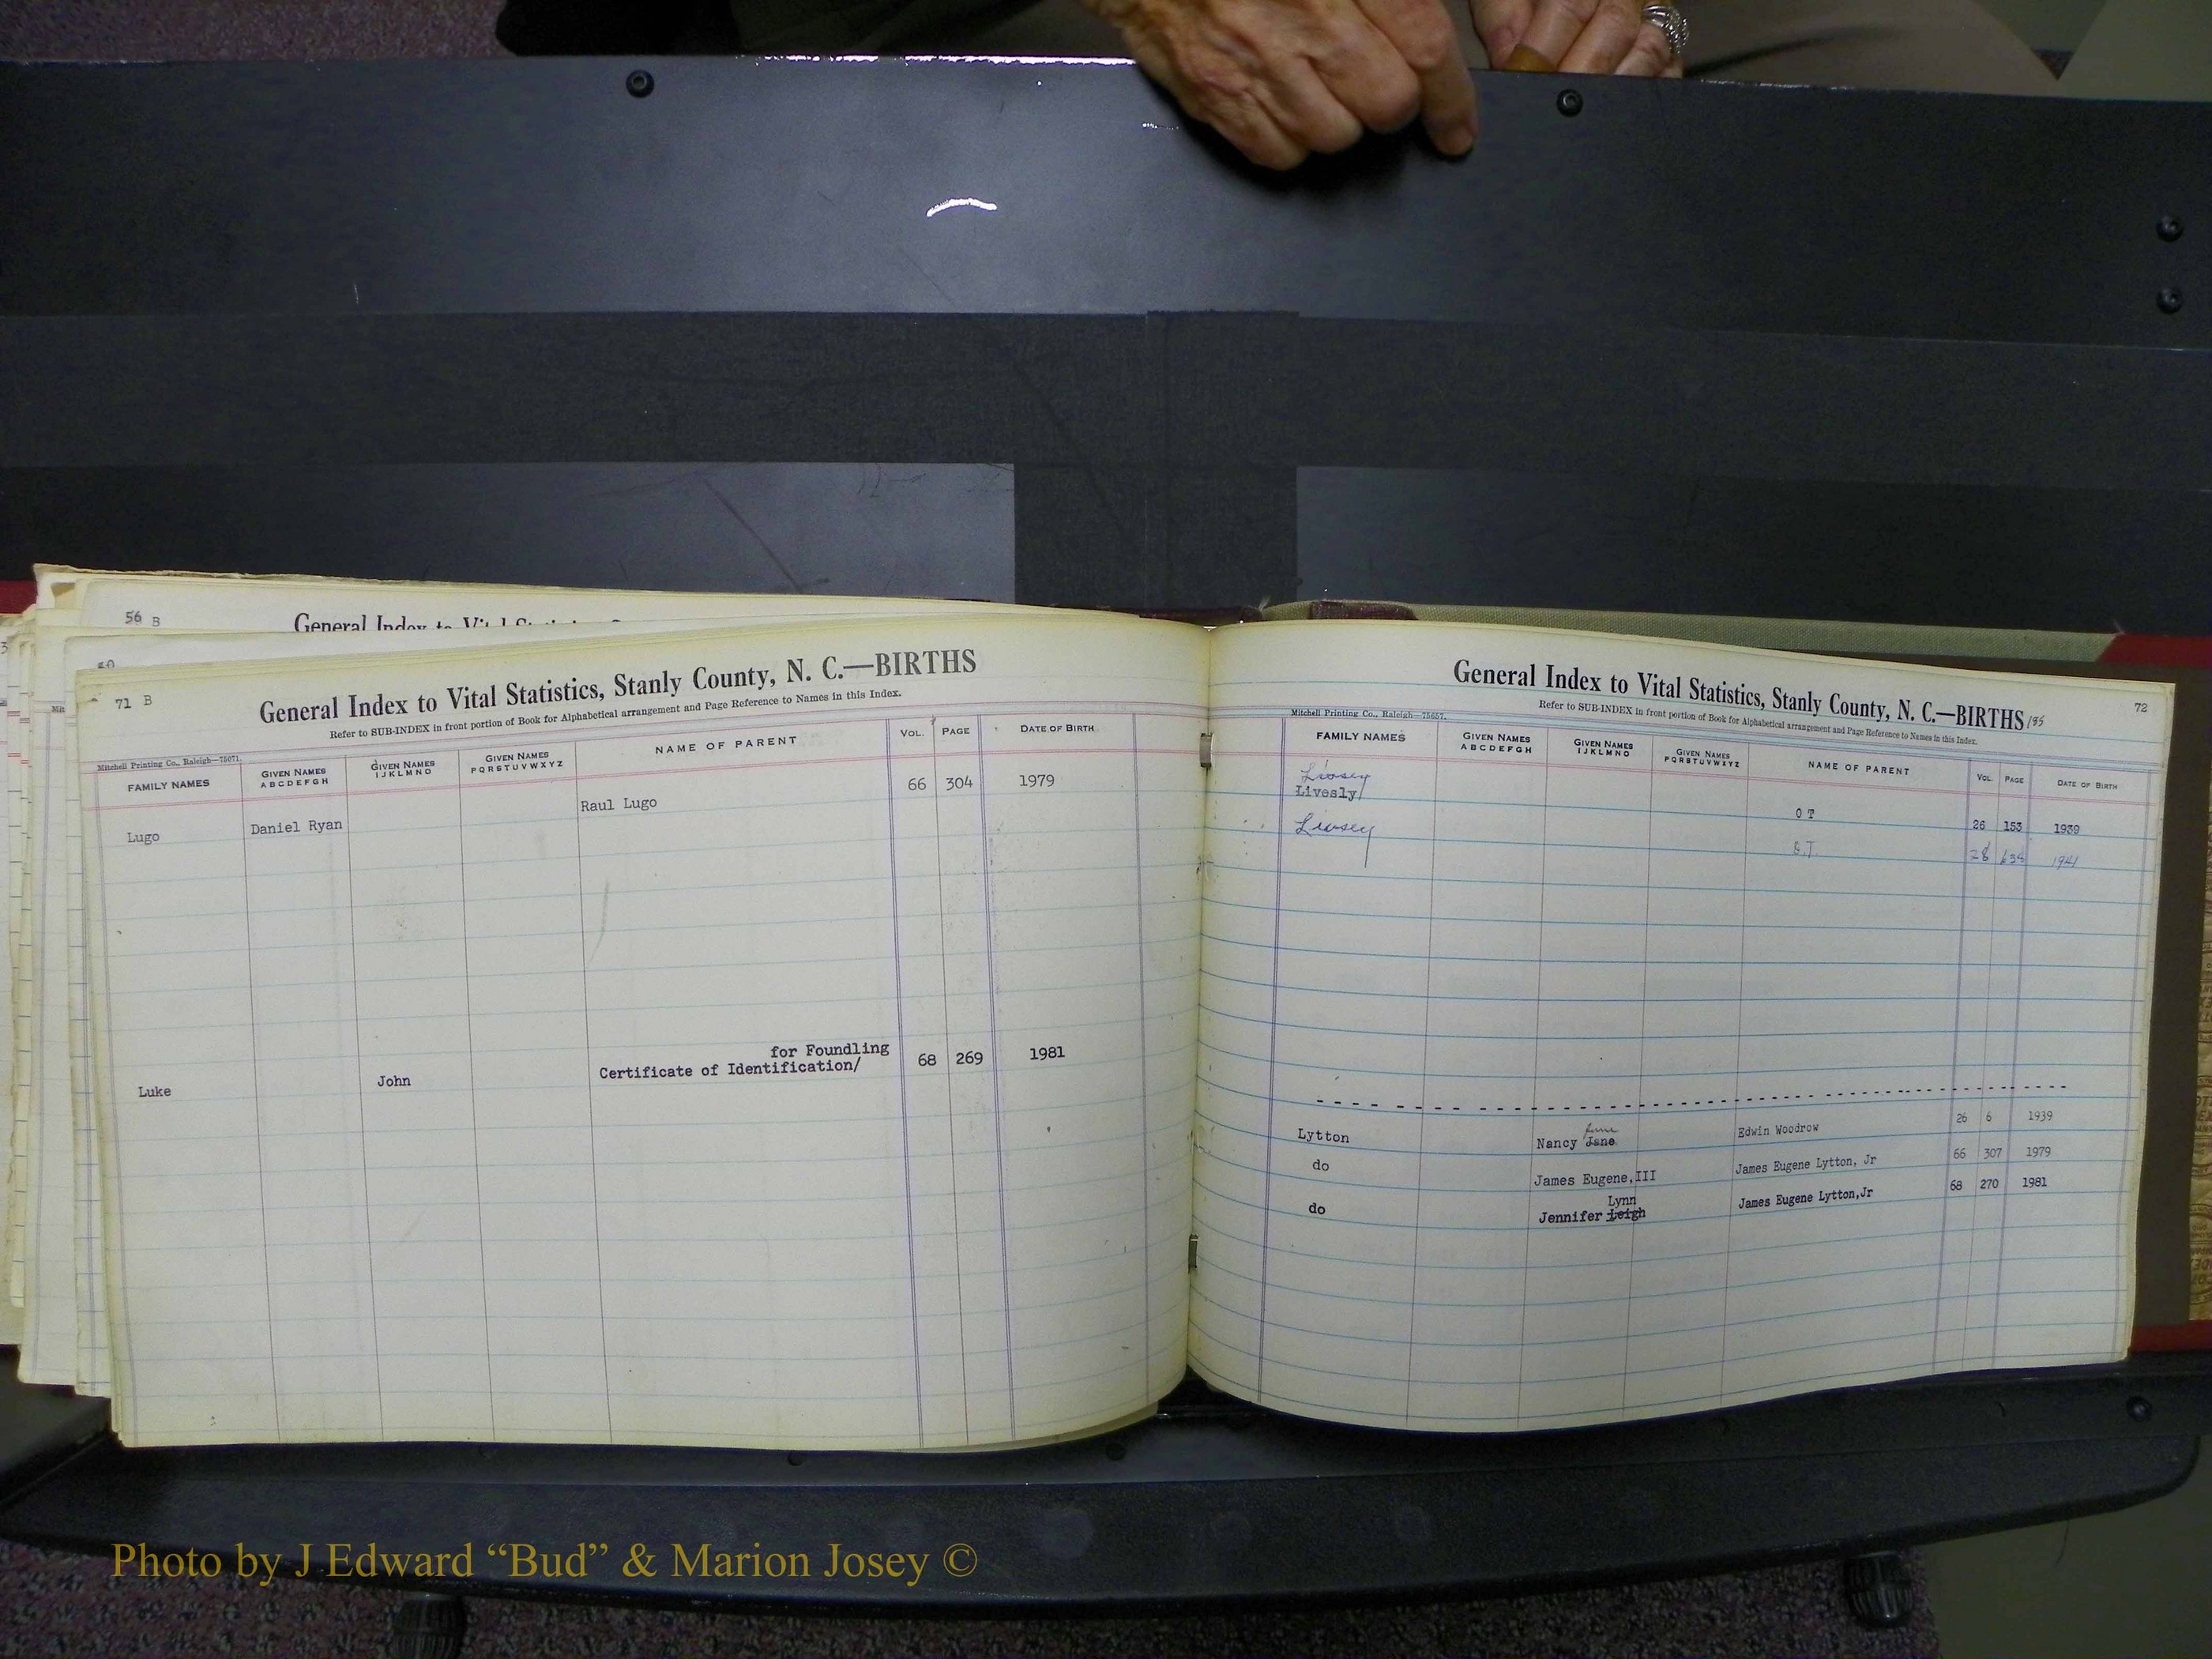 56 B
General Index to Vital Statistics
71 B
General Index to Vital Statistics, Stanly County, N. C.—BIRTHS
Refer to SUB-INDEX in front portion of Book for Alphabetical arrangement and Page Reference to Names in this Index.
Mitchell Printing Co., Raleigh—75071.
FAMILY NAMES GIVEN NAMES ABCDEFGH GIVEN NAMES IJKLMNO GIVEN NAMES PQRSTUVWXYZ NAME OF PARENT VOL. PAGE DATE OF BIRTH
Lugo Daniel Ryan Raul Lugo 66 304 1979
for Foundling
Luke John Certificate of Identification/ 68 269 1981
72
General Index to Vital Statistics, Stanly County, N. C.—BIRTHS
Refer to SUB-INDEX in front portion of Book for Alphabetical arrangement and Page Reference to Names in this Index.
Mitchell Printing Co., Raleigh—75657.
FAMILY NAMES GIVEN NAMES ABCDEFGH GIVEN NAMES IJKLMNO GIVEN NAMES PQRSTUVWXYZ NAME OF PARENT VOL. PAGE DATE OF BIRTH
Livesly/ O T 26 153 1939
28 1941
Lytton Nancy Jane Edwin Woodrow 26 6 1939
do James Eugene,III James Eugene Lytton, Jr 66 307 1979
Lynn
do Jennifer Leigh James Eugene Lytton,Jr 68 270 1981
Photo by J Edward “Bud” & Marion Josey ©